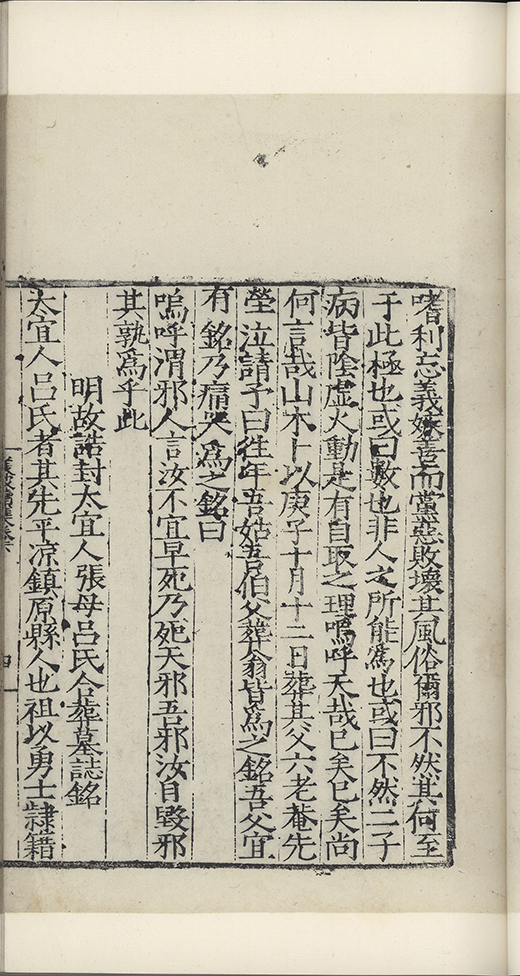 嗜利忘義嫉善而黨惡敗壞其風俗爾邪不然其何至
于此極也或曰數也非人之所能為也或曰不然二子
病皆陰虛火動是有自取之理嗚呼天哉巳矣巳矣尚
何言哉山木卜以庚子十月十二日葬其父六老菴先
塋泣請予曰徃年吾姑吾伯父葬翁皆為之銘吾父宜
有銘乃痛哭為之銘曰
嗚呼渭邪人言汝不宜早死乃死天邪吾邪汝自毉邪
其孰為乎此
明故誥封太宜人張母呂氏合葬墓誌銘
太宜人呂氏者其先平凉鎮原縣人也祖以勇士隸籍
四